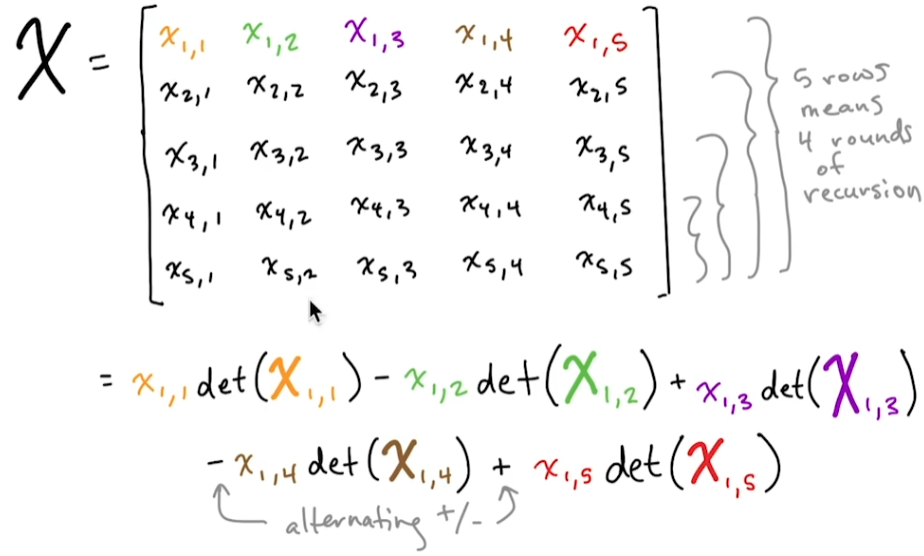 X = [ x1,1 x1,2 x1,3 x1,4 x1,5
x2,1 x2,2 x2,3 x2,4 x2,5
x3,1 x3,2 x3,3 x3,4 x3,5
x4,1 x4,2 x4,3 x4,4 x4,5
x5,1 x5,2 x5,3 x5,4 x5,5 ]
5 rows
means
4 rounds
of
recursion
= x1,1 det(X1,1) - x1,2 det(X1,2) + x1,3 det(X1,3)
- x1,4 det(X1,4) + x1,5 det(X1,5)
alternating +/-